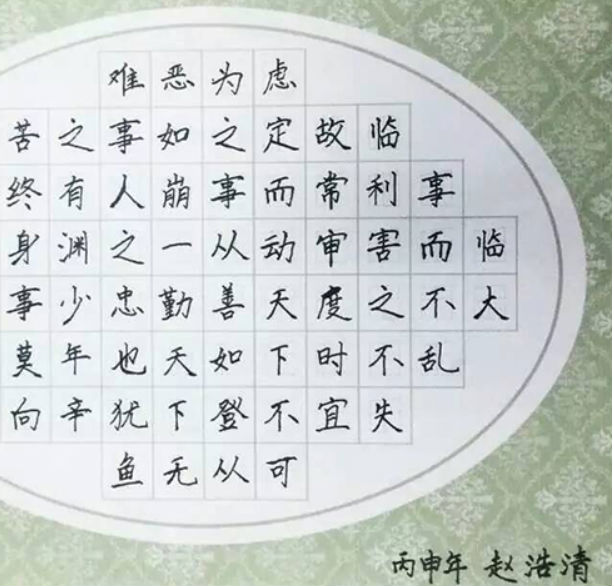 临大
事而不乱
临利害之不失
故常审度时宜
虑定而动天下不可
为之事从善如登从
恶如崩一勤天下无
难事人之忠也犹鱼
之有渊少年辛
苦终身事莫向
丙申年 赵浩清